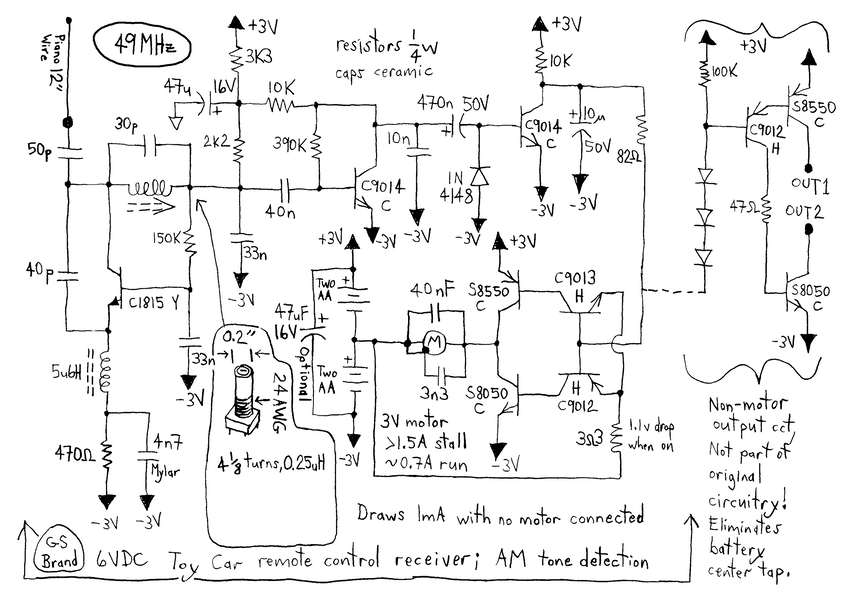 Piano 12"
Wire
49MHz
+3V
3K3
resistors 1/4 w
caps ceramic
+3V
10K
+3V
100K
S8550
C
C9012
H
47u
16V
10K
2K2
390K
30p
50p
470n 50V
10n
C9014
C
10µ
50V
82Ω
1N
4148
C9014
C
40n
-3V
-3V
-3V
-3V
-3V
47Ω
OUT1
OUT2
150K
33n
-3V
40p
C1815 Y
+3V
+3V
Two
AA
47uF
16V
Optional
Two
AA
-3V
40nF
M
3n3
S8550
C
C9013
H
S8050
C
C9012
H
-3V
S8050
C
-3V
33n
-3V
0.2"
24 AWG
4 1/8 turns, 0.25uH
5u6H
470Ω
4n7
Mylar
-3V
-3V
3V motor
>1.5A stall
~0.7A run
3Ω3
1.1v drop
when on
Non-motor
output cct,
Not part of
original
circuitry!
Eliminates
battery
center tap.
Draws 1mA with no motor connected
GS
Brand
6VDC Toy Car remote control receiver; AM tone detection